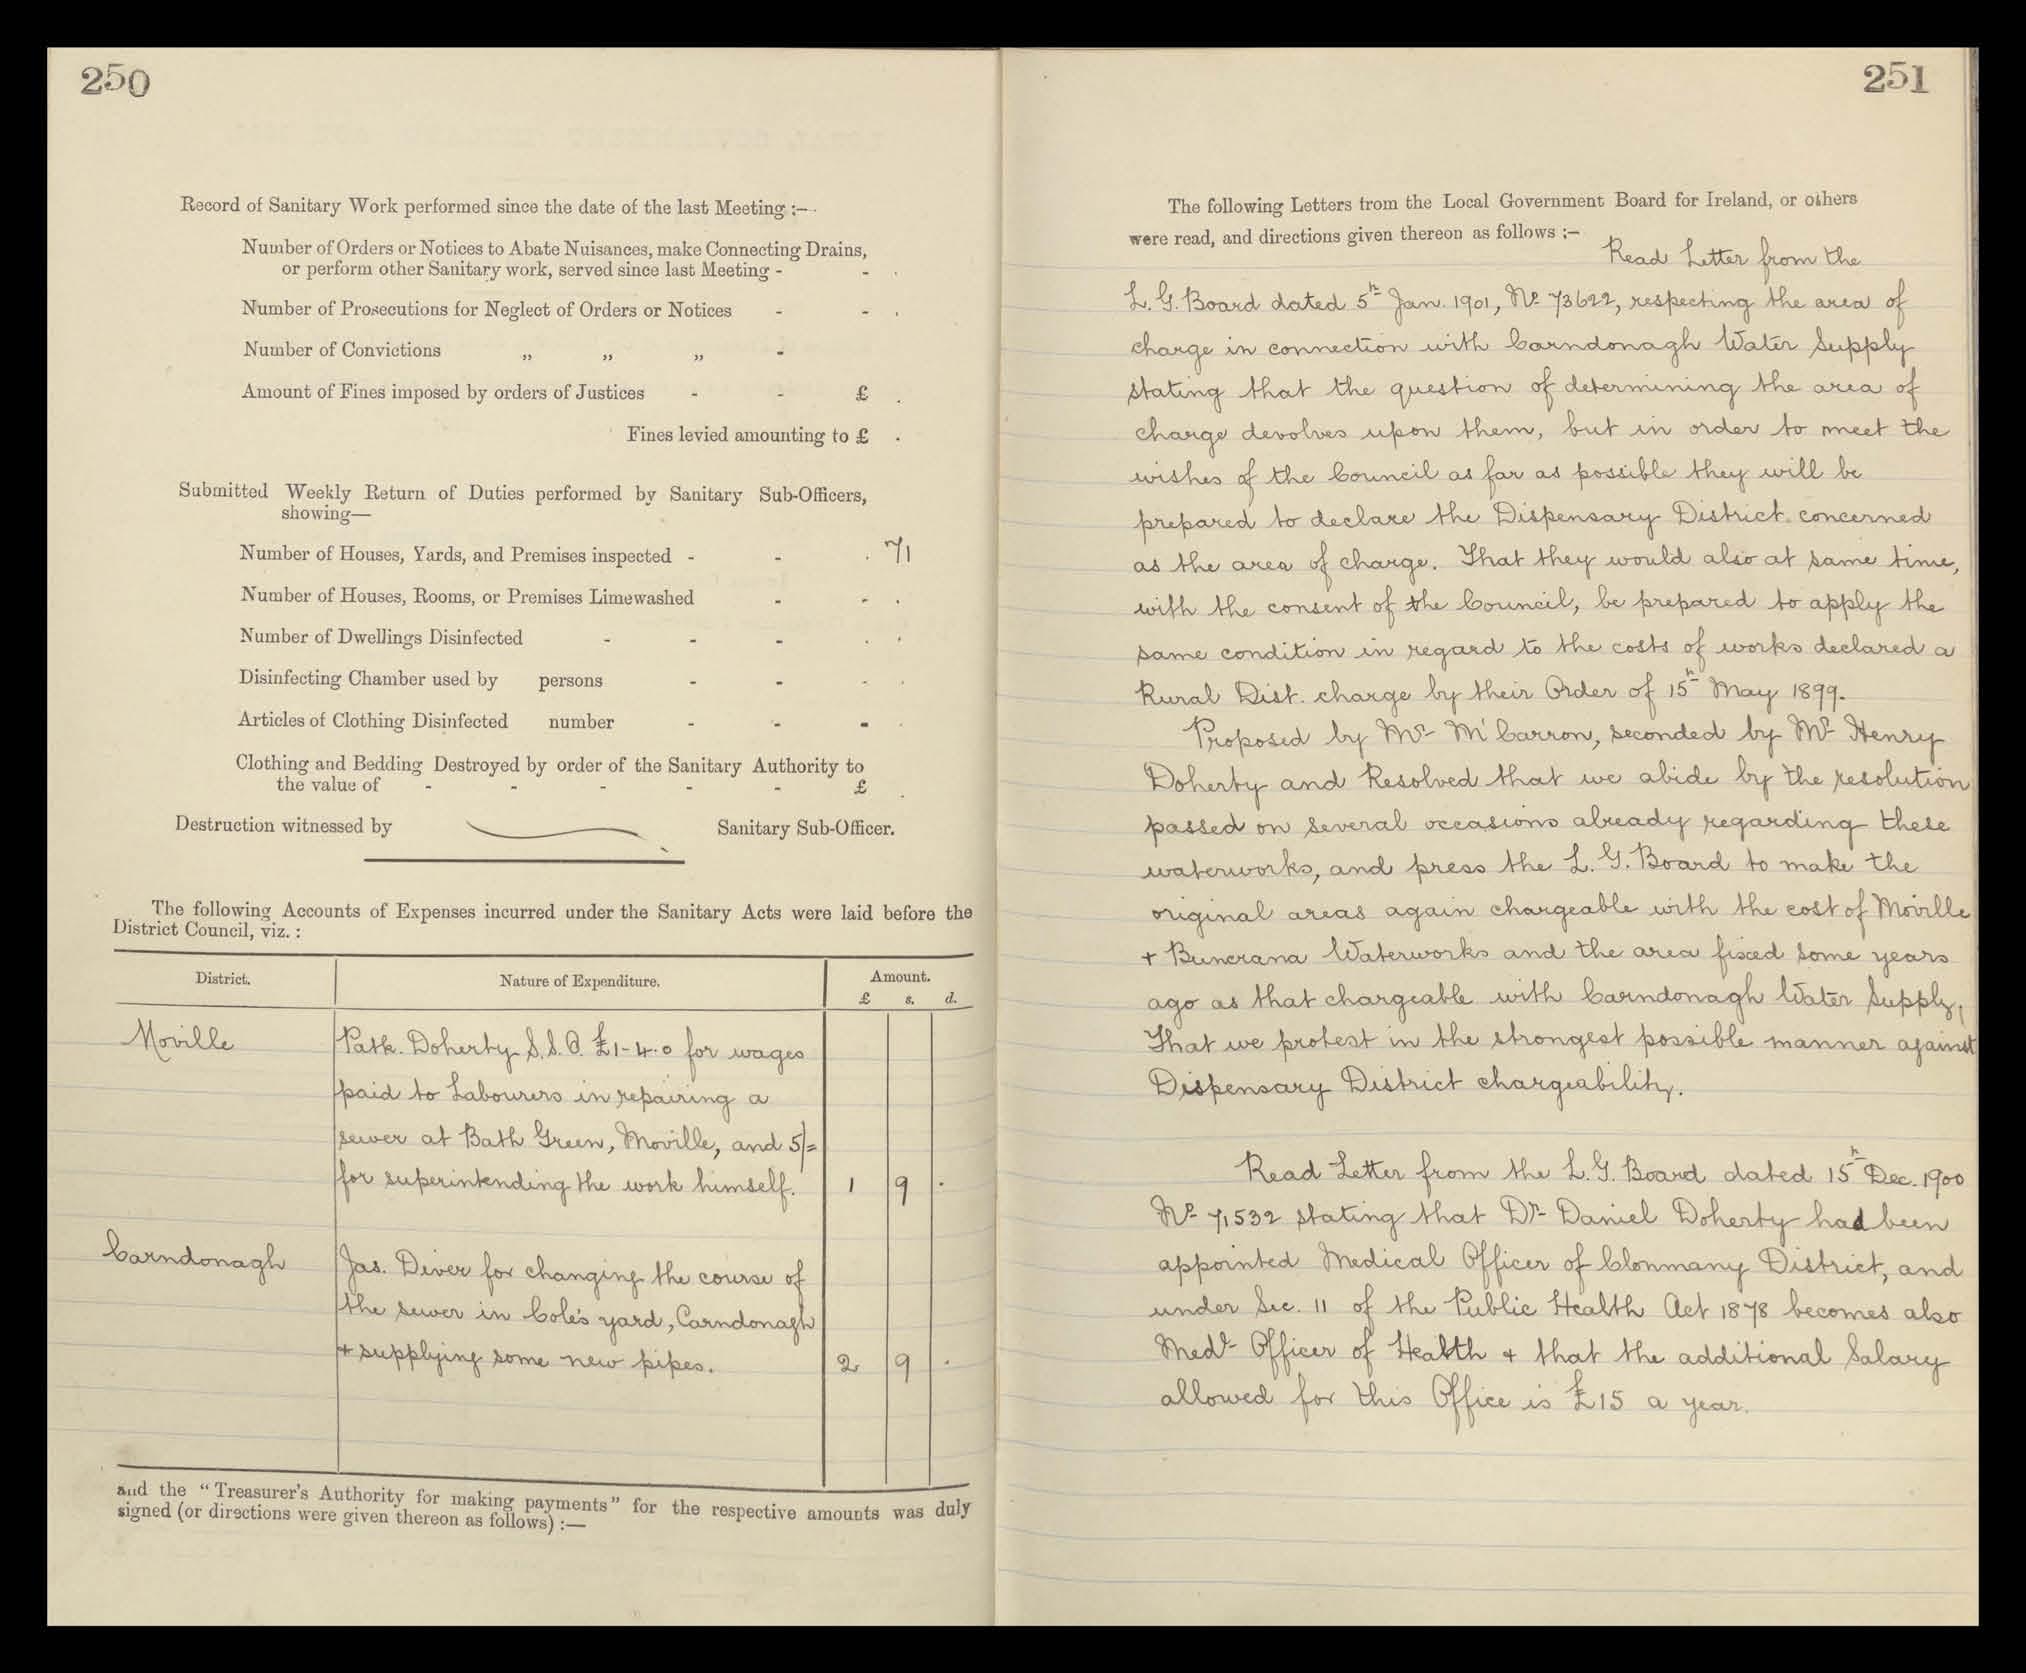 250
Record of Sanitary Work performed since the date of the last Meeting :—
Number of Orders or Notices to Abate Nuisances, make Connecting Drains,
or perform other Sanitary work, served since last Meeting - - .
Number of Prosecutions for Neglect of Orders or Notices - - .
Number of Convictions „ „ „ -
Amount of Fines imposed by orders of Justices - - £ .
Fines levied amounting to £ .
Submitted Weekly Return of Duties performed by Sanitary Sub-Officers,
showing—
Number of Houses, Yards, and Premises inspected - - . 71
Number of Houses, Rooms, or Premises Limewashed - - .
Number of Dwellings Disinfected - - - . .
Disinfecting Chamber used by persons - - - .
Articles of Clothing Disinfected number - - - .
Clothing and Bedding Destroyed by order of the Sanitary Authority to
the value of - - - - - £ .
Destruction witnessed by Sanitary Sub-Officer.
The following Accounts of Expenses incurred under the Sanitary Acts were laid before the
District Council, viz. :
District. Nature of Expenditure. Amount.
£ s. d.
Moville Patk. Doherty S.S.O. £1-4.0 for wages
paid to Labourers in repairing a
sewer at Bath Green, Moville, and 5/=
for superintending the work himself. 1 9 .
Carndonagh Jas. Diver for changing the course of
the sewer in Cole's yard, Carndonagh
+ supplying some new pipes. 2 9 .
and the "Treasurer's Authority for making payments" for the respective amounts was duly
signed (or directions were given thereon as follows) :—
251
The following Letters from the Local Government Board for Ireland, or others
were read, and directions given thereon as follows :—
Read Letter from the
L. G. Board dated 5th Jan. 1901, No. 73622, respecting the area of
charge in connection with Carndonagh Water Supply
stating that the question of determining the area of
charge devolves upon them, but in order to meet the
wishes of the Council as far as possible they will be
prepared to declare the Dispensary District concerned
as the area of charge. That they would also at same time,
with the consent of the Council, be prepared to apply the
same condition in regard to the costs of works declared a
Rural Dist. charge by their Order of 15th May 1899.
Proposed by Mr. McCarron, seconded by Mr. Henry
Doherty and Resolved that we abide by the resolution
passed on several occasions already regarding these
waterworks, and press the L. G. Board to make the
original areas again chargeable with the cost of Moville
+ Buncrana Waterworks and the area fixed some years
ago as that chargeable with Carndonagh Water Supply,
That we protest in the strongest possible manner against
Dispensary District chargeability.
Read Letter from the L. G. Board dated 15th Dec. 1900
No. 71532 stating that Dr. Daniel Doherty had been
appointed Medical Officer of Clonmany District, and
under Sec. 11 of the Public Health Act 1878 becomes also
Medl. Officer of Health + that the additional Salary
allowed for this Office is £15 a year.